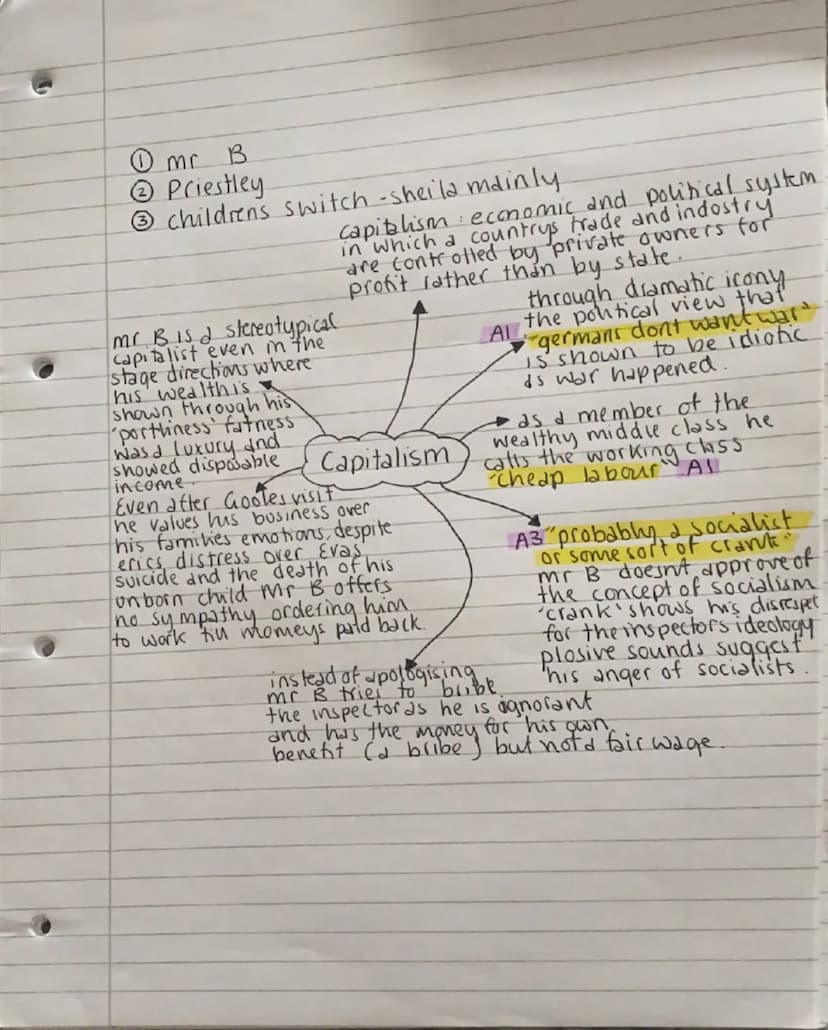 ① mr B
② Priestley
③ childrens switch - sheila mainly
capitalism: economic and political system
in which a countrys trade and indostry
are controlled by private owners for
profit rather than by state.
through dramatic irony
A1 the political view that
"germans dont want war"
is shown to be idiotic
as war happened.
mr B is a stereotypical
capitalist even in the
stage directions where
his wealth is
shown through his
'portliness' fatness
was a luxury and
showed disposable
income.
as a member of the
wealthy middle class he
calls the working class
"cheap labour" A1
Capitalism
Even after Gooles visit
he values his business over
his families emotions, despite
erics distress over Evas
suicide and the death of his
unborn child Mr B offers
no sympathy ordering him
to work till moneys paid back.
A3 "probably a socialist
or some sort of crank"
mr B doesnt approve of
the concept of socialism
'crank' shows his disrespet
for the inspectors ideology
plosive sounds suggest
his anger of socialists.
instead of apologising
mr B tries to bribe
the inspector as he is ignorant
and has the money for his own
benefit (a bribe) but not a fair wage.